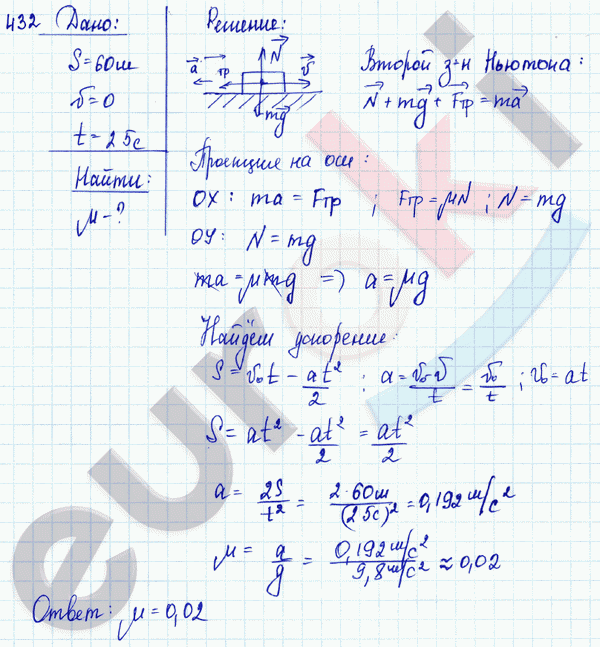 432 Дано:
S=60м
v=0
t=25с
Найти:
μ-?
Решение:
N
a Fтр v
mg
Второй з-н Ньютона:
N+mg+Fтр=ma
Проекция на оси:
OX: ma=Fтр ; Fтр=μN ; N=mg
OY: N=mg
ma=μmg => a=μg
Найдём ускорение:
S=v₀t-at²/2 ; a=v₀-v/t=v₀/t ; v₀=at
S=at²-at²/2=at²/2
a=2S/t²=2·60м/(25с)²=0,192м/с²
μ=a/g=0,192м/с²/9,8м/с²≈0,02
Ответ: μ=0,02
euroki